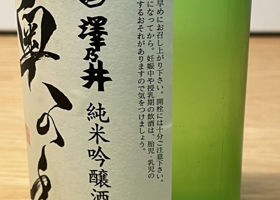 奥の
澤乃井
純米吟醸酒
早めにお召し上がり下さい。開栓には十分ご注意下さい。
になってから。妊娠中や授乳期の飲酒は、胎児・乳児の
するおそれがありますので気をつけましょう。